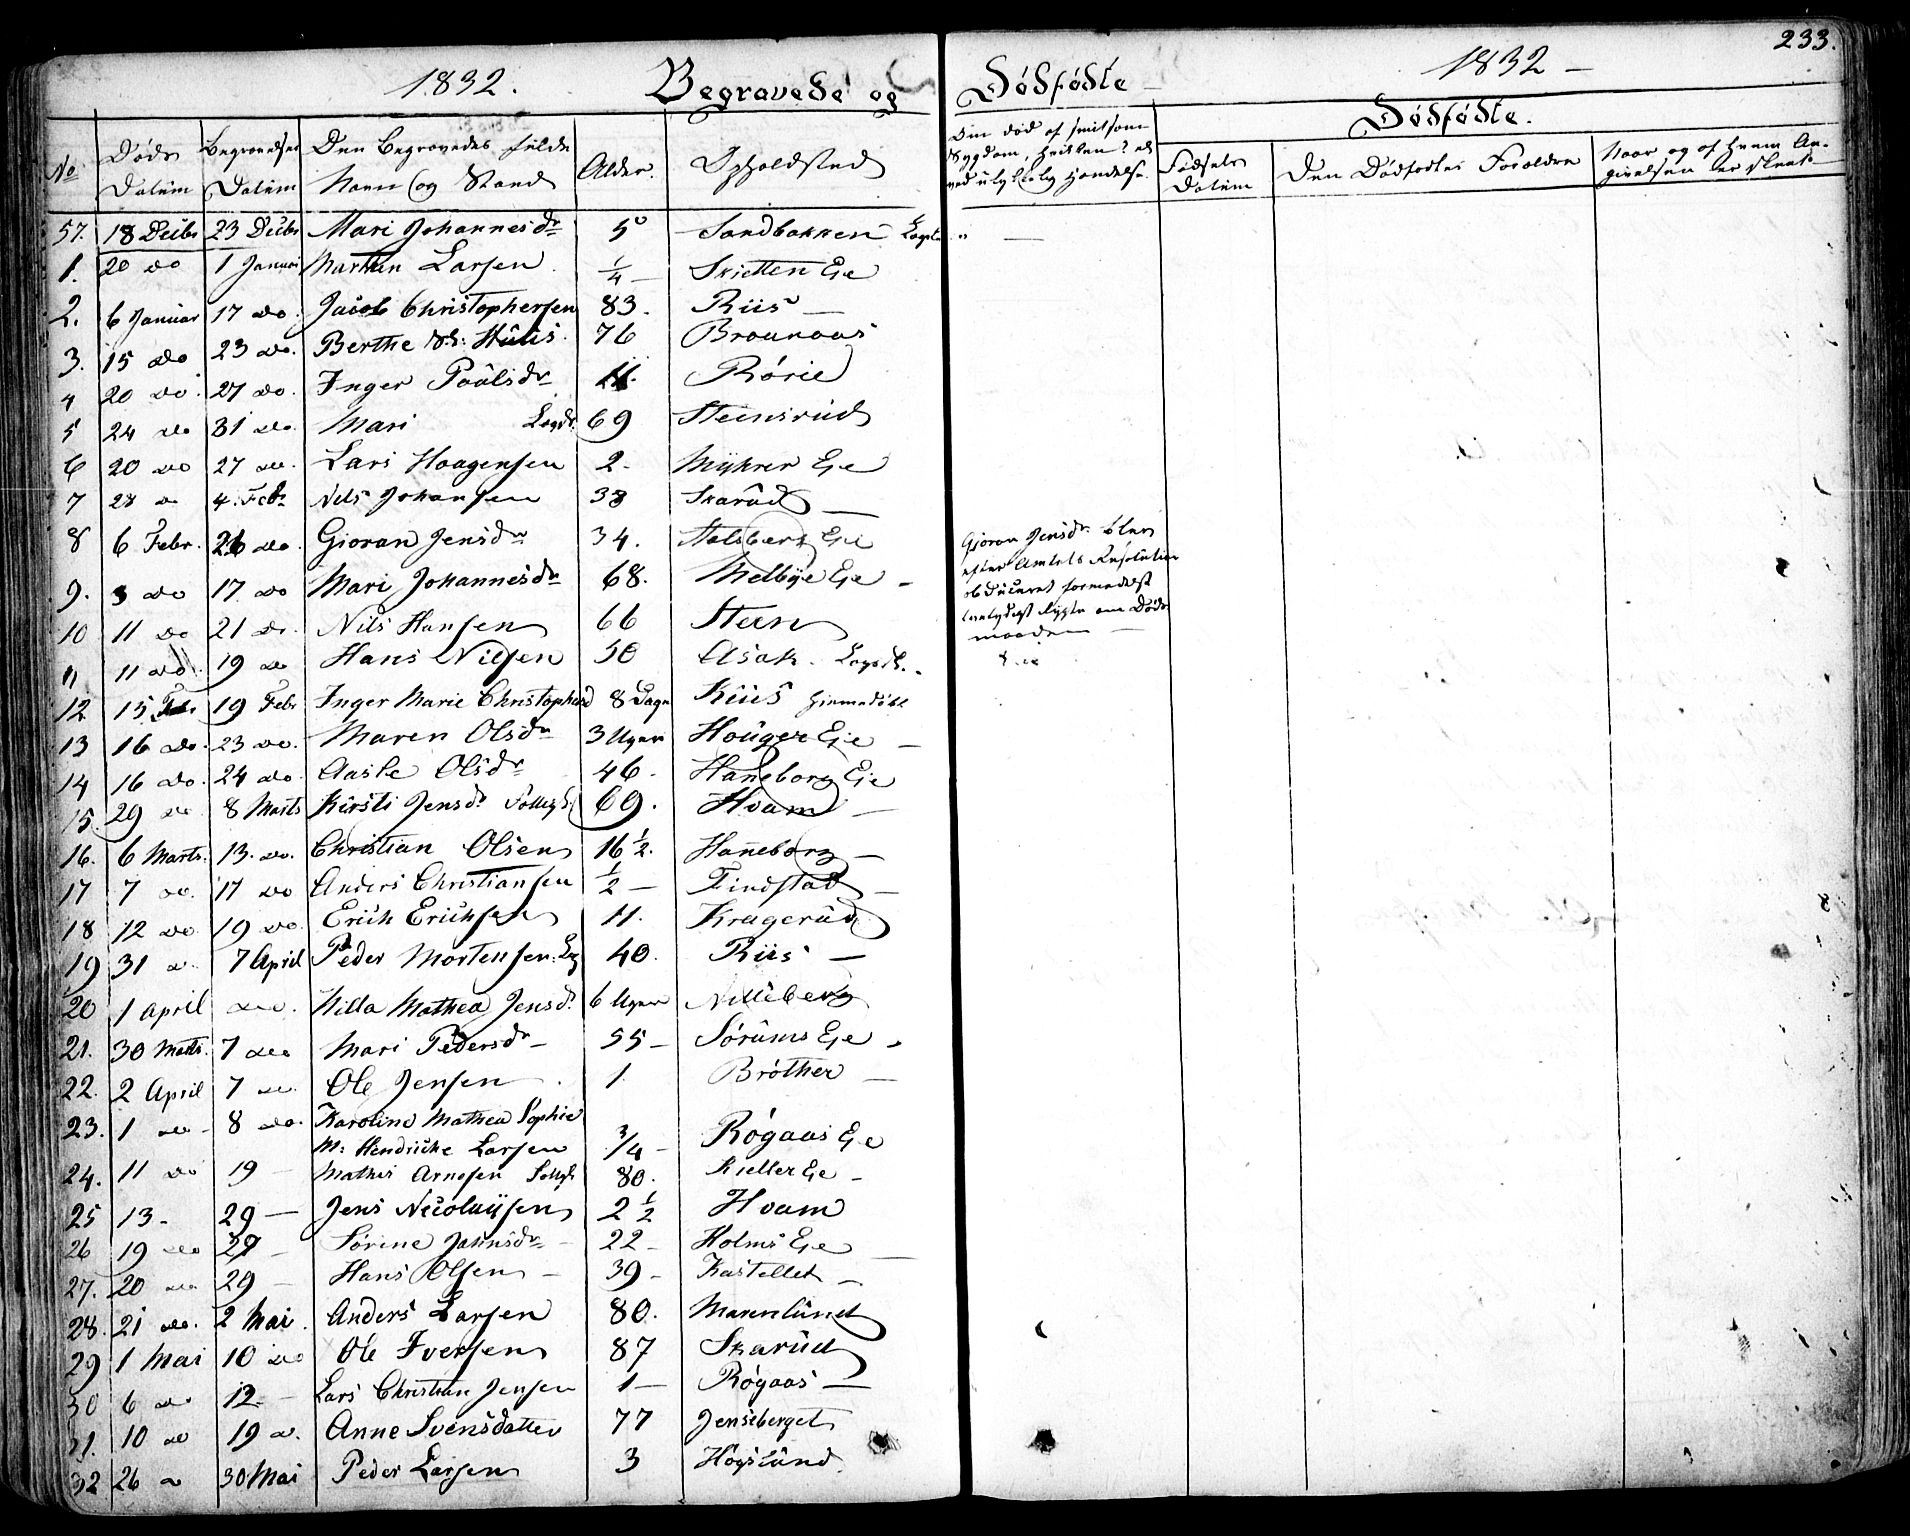 233.
1832. Begravede og Dödfödte 1832 –
Dödfödte.
No
Döds Datum
Begravelses Datum
Den Begravedes fulde Navn og Stand
Alder.
Opholdsted
Om död af smitsom
Sygdom, hvilken? el
ved ulykkelig Hændelse.
Födsels Datum
Den Dödfödtes Forældre
Naar og af hvem An-
givelsen er skeet
57. 18 Decbr 23 Decbr Mari Johannesdr 5 Sandbakken Lagd
1. 20 do 1 Januari Martin Larsen 1/4 – Skietten Eje
2. 6 Januar 17 do. Jacob Christophersen 83. Riis –
3. 15 do 23 do. Berthe 76 Braanaas
4 20 do 27 do. Inger Paulsdr 11. Rörie
5 24 do 31 do. Mari Lagd. 69 Steensrud
6 20 do 27 do. Lars Haagensen 2. Myhrer Eje
7 28 do 4. Febr Nils Johansen 38 Skarud –
8 6 Febr. 26 do. Gioran Jensdr 34. Stalsberg Eie
9. 3 do 17 do Mari Johannesdr 68. Melbye Eje –
10 11 do 21 do. Nils Hansen 66 Steen
11 11 do. 19 do Hans Nilsen 50 Asak. Lagd.
12 15 Febr 19 Febr Inger Marie Christophersd 8 Dage Riis hiemmedöbt
13 16 do. 23 do. Maren Olsdr 3 Uger Houger Eje –
14 16 do. 24 do Aasle Olsdr 46. Haneborg Eje
15. 29 do 8 Marts Kirsti Jensdr 69. Hvam –
16. 6 Marts. 13. do. Christian Olsen 16 1/2. Haneborg –
17 7 do. 17 do Anders Christiansen 1/2 – Findstad –
18 12 do 19 do. Erich Erichsen 11. Krogerud
19 31 do 7 April Peder Mortensen Lg 40. Riis –
20 1 April do. Nilla Mathea Jensdr 6 Uger Nitteberg
21. 30 Marts. 7 do Mari Pedersdr – 55 – Sörums Eje
22. 2 April 7 do. Ole Jensen 1 Bröther –
23. 1 do – 8 do. Karoline Mathea Sophie
M: Hendricke Larsen 3/4 – Rögaas Eje
24. 11 do 19 – Mathis Arnesen 80. Kieller Eje –
25 13 – 29 – Jens Nicolaysen 2 1/2 Hvam
26 19 do 29 – Sörine Jahnsdr – 22 – Holms Eje –
27. 20 do 29 – Hans Olsen – 39 – Kastellet –
28. 21 do. 2 Mai. Anders Larsen 80. Marenlund
29 1 Mai 10 do Ole Iversen 87 Skarud
30 6 do 12 – Lars Christian Jensen 1 – Rögaas –
31. 10 do 19 do. Anne Svensdatter 77 Jenseberget
32 26 do 30 Mai Peder Larsen 3 Högslund
Gjoran Jensdr. blev
efter Amtets Resolution
obduceret formedelst
Rygte om Döds-
maaden –